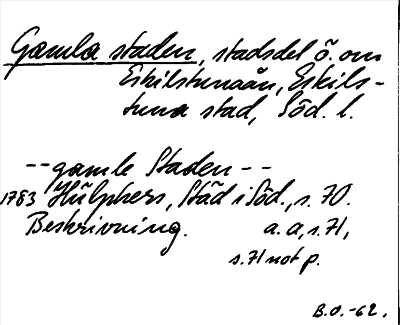 Gamla staden, stadsdel ö. om
Eskilstunaån, Eskils-
tuna stad, Söd. l.
-- gamle Staden --
1783 Hülphers, Städ i Söd., s. 70.
Beskrivning. a. a, s. 71,
s. 71 not p.
B.O. -62.